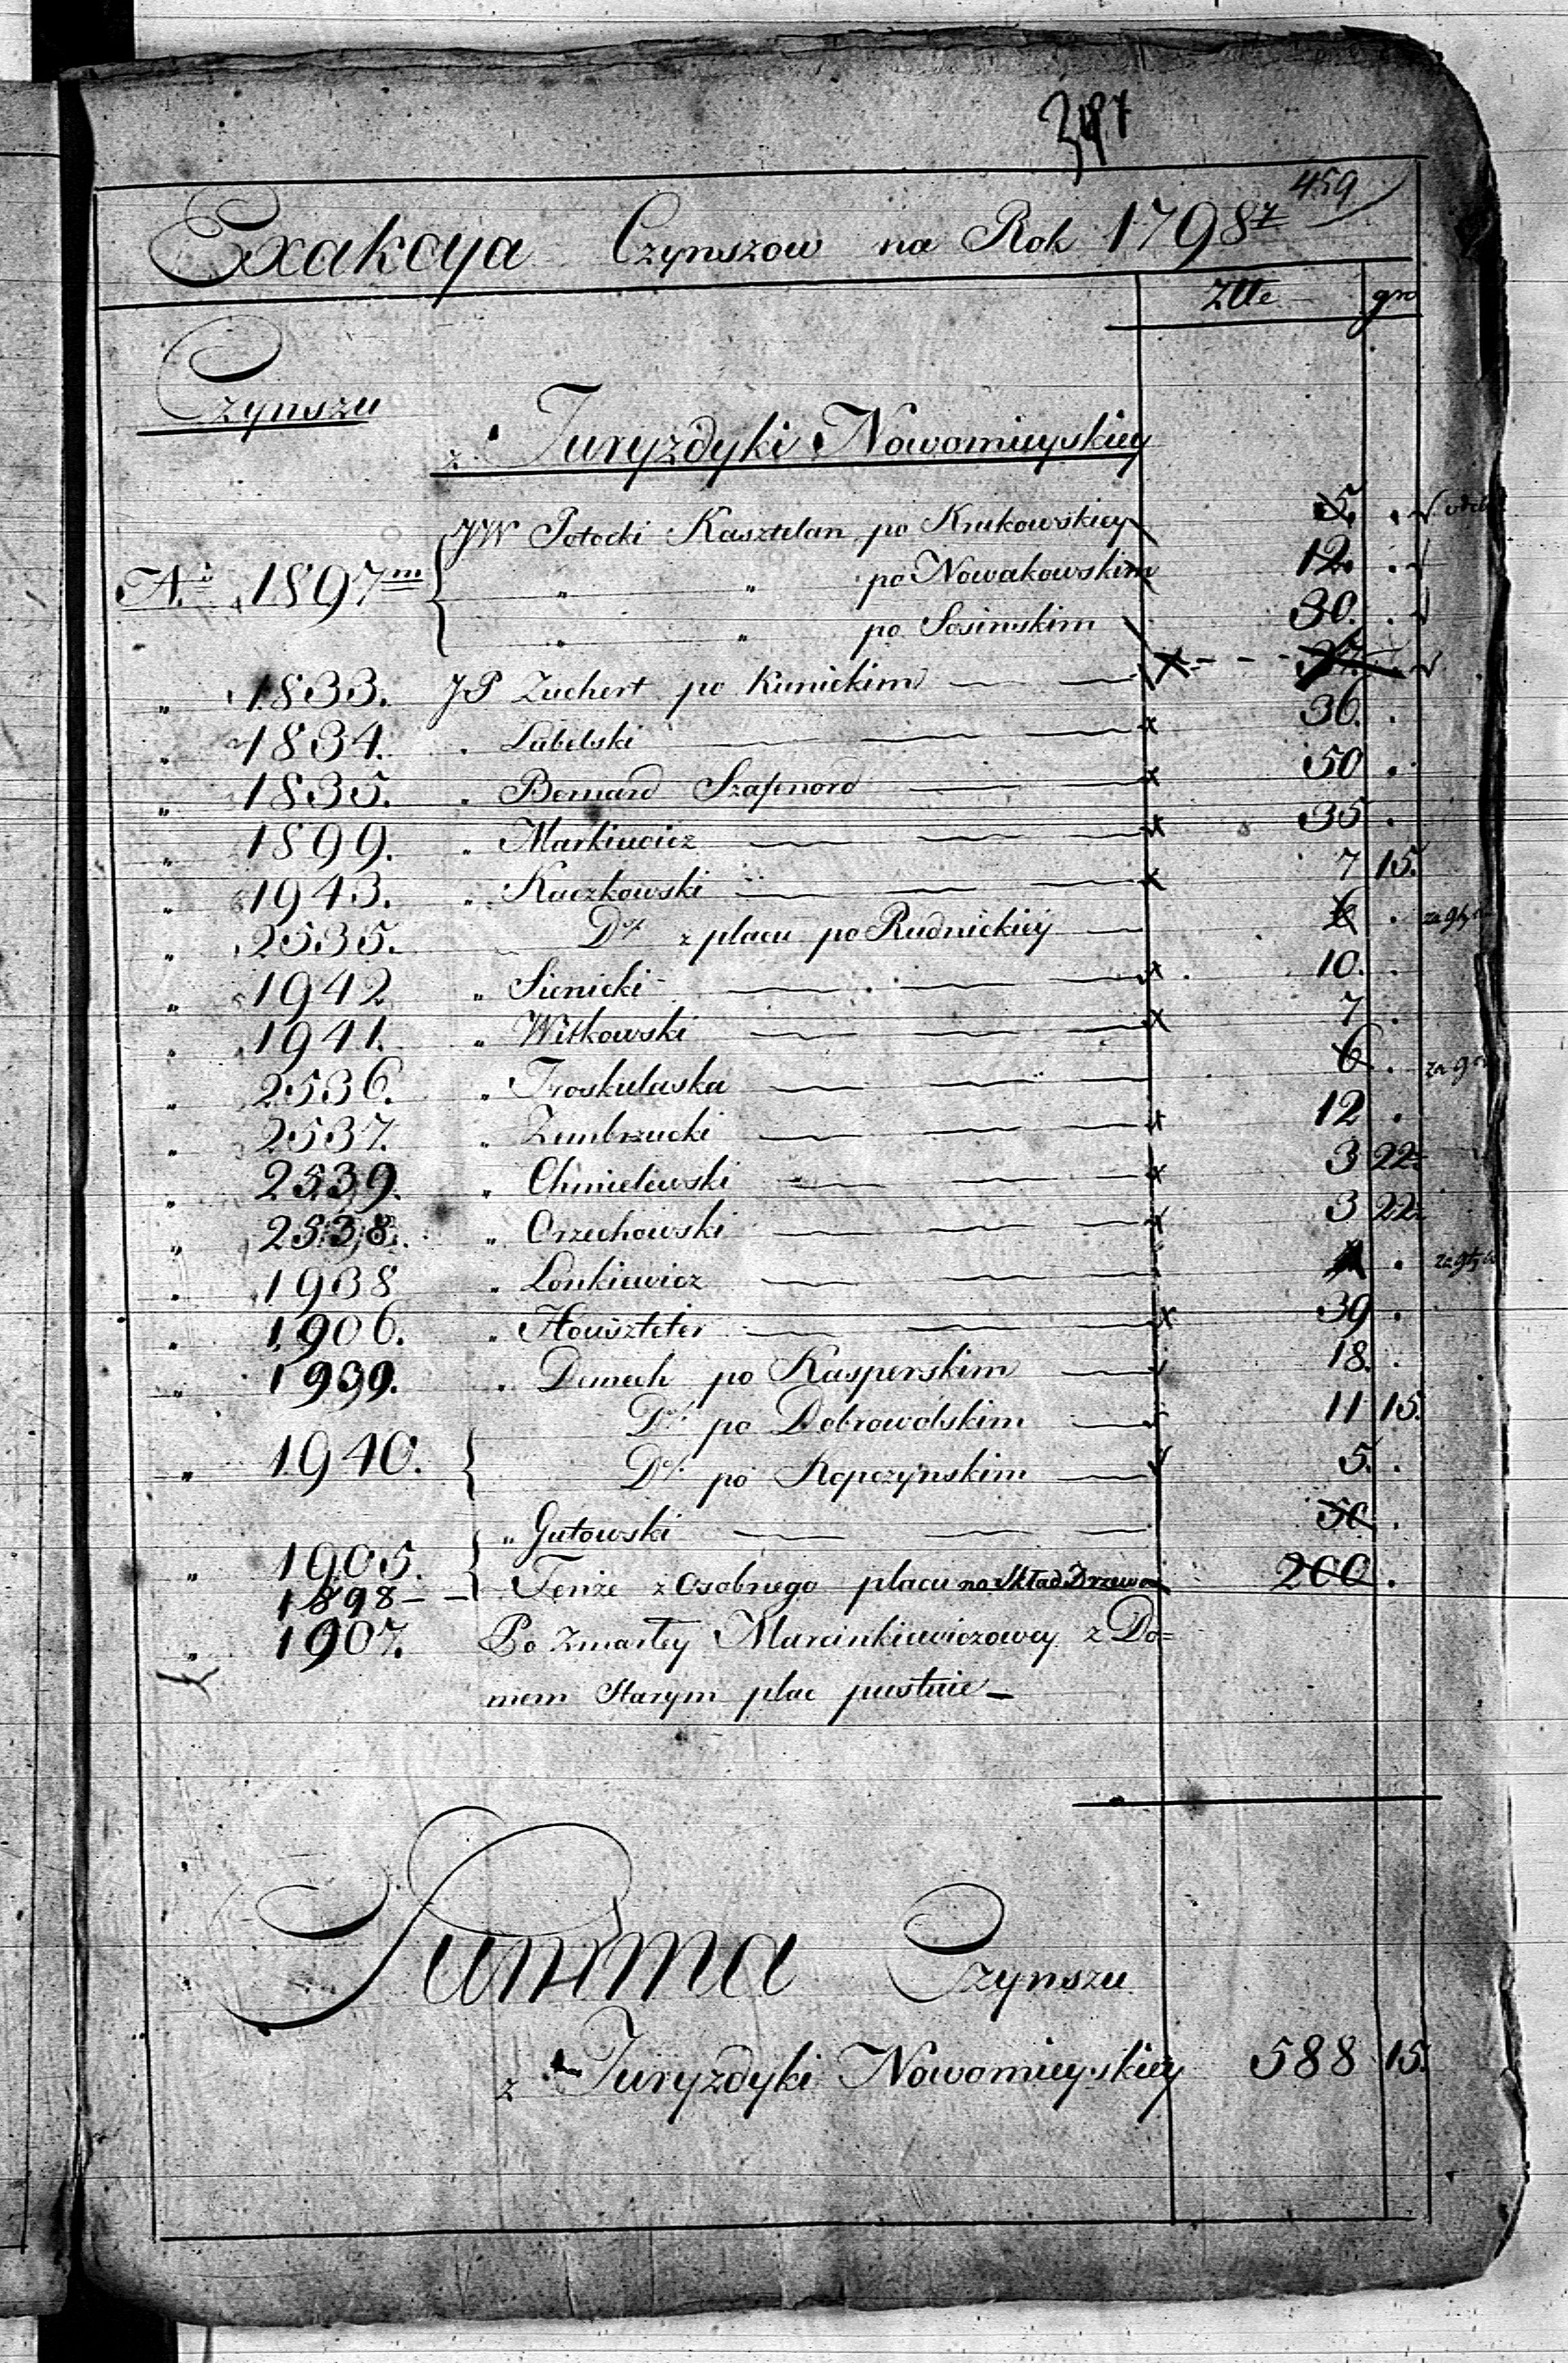 459
Exakcya Czynszow na Rok 1798
Złłe gro
Czynszu
z Juryzdyki Nowomieyskiey
JW Potocki Kasztelan po Krukowskiey 5. .
No 1897m " " po Nowakowskim 12. .
" " po Sosinskim 30. .
" 1833. JP Zuchert po Kunickim
" 1834. . Lubelski 36. .
" 1835. . Bernard Szafenord 50 .
" 1899. . Markiewicz 35 .
" 1943. " Kaczkowski 7 15.
" 2535. Do z placu po Rudnickiey 6 .
" 1942 " Sienicki 10. .
" 1941. " Witkowski 7 .
" 2536. " Troskulaska 6 .
" 2537. " Zembrzucki 12 .
" 2539. " Chmielewski 3 22.
" 2538. " Orzechowski 3 22.
" 1938 " Lonkiewicz .
" 1906. " Houszteter 39 .
" 1939. " Dumech po Kasperskim 18. .
Do po Dobrowolskim 11 15.
" 1940. Do po Kopczynskim 5. .
" Gutowski 50 .
" 1905.
1898 Tenże z Osobnego placu na Skład Drzewa 200 .
" 1907. Po Zmarłey Marcinkiewiczowey z Do=
mem Starym plac pustuie
Summa Czynszu
z Juryzdyki Nowomieyskiey 588 15.